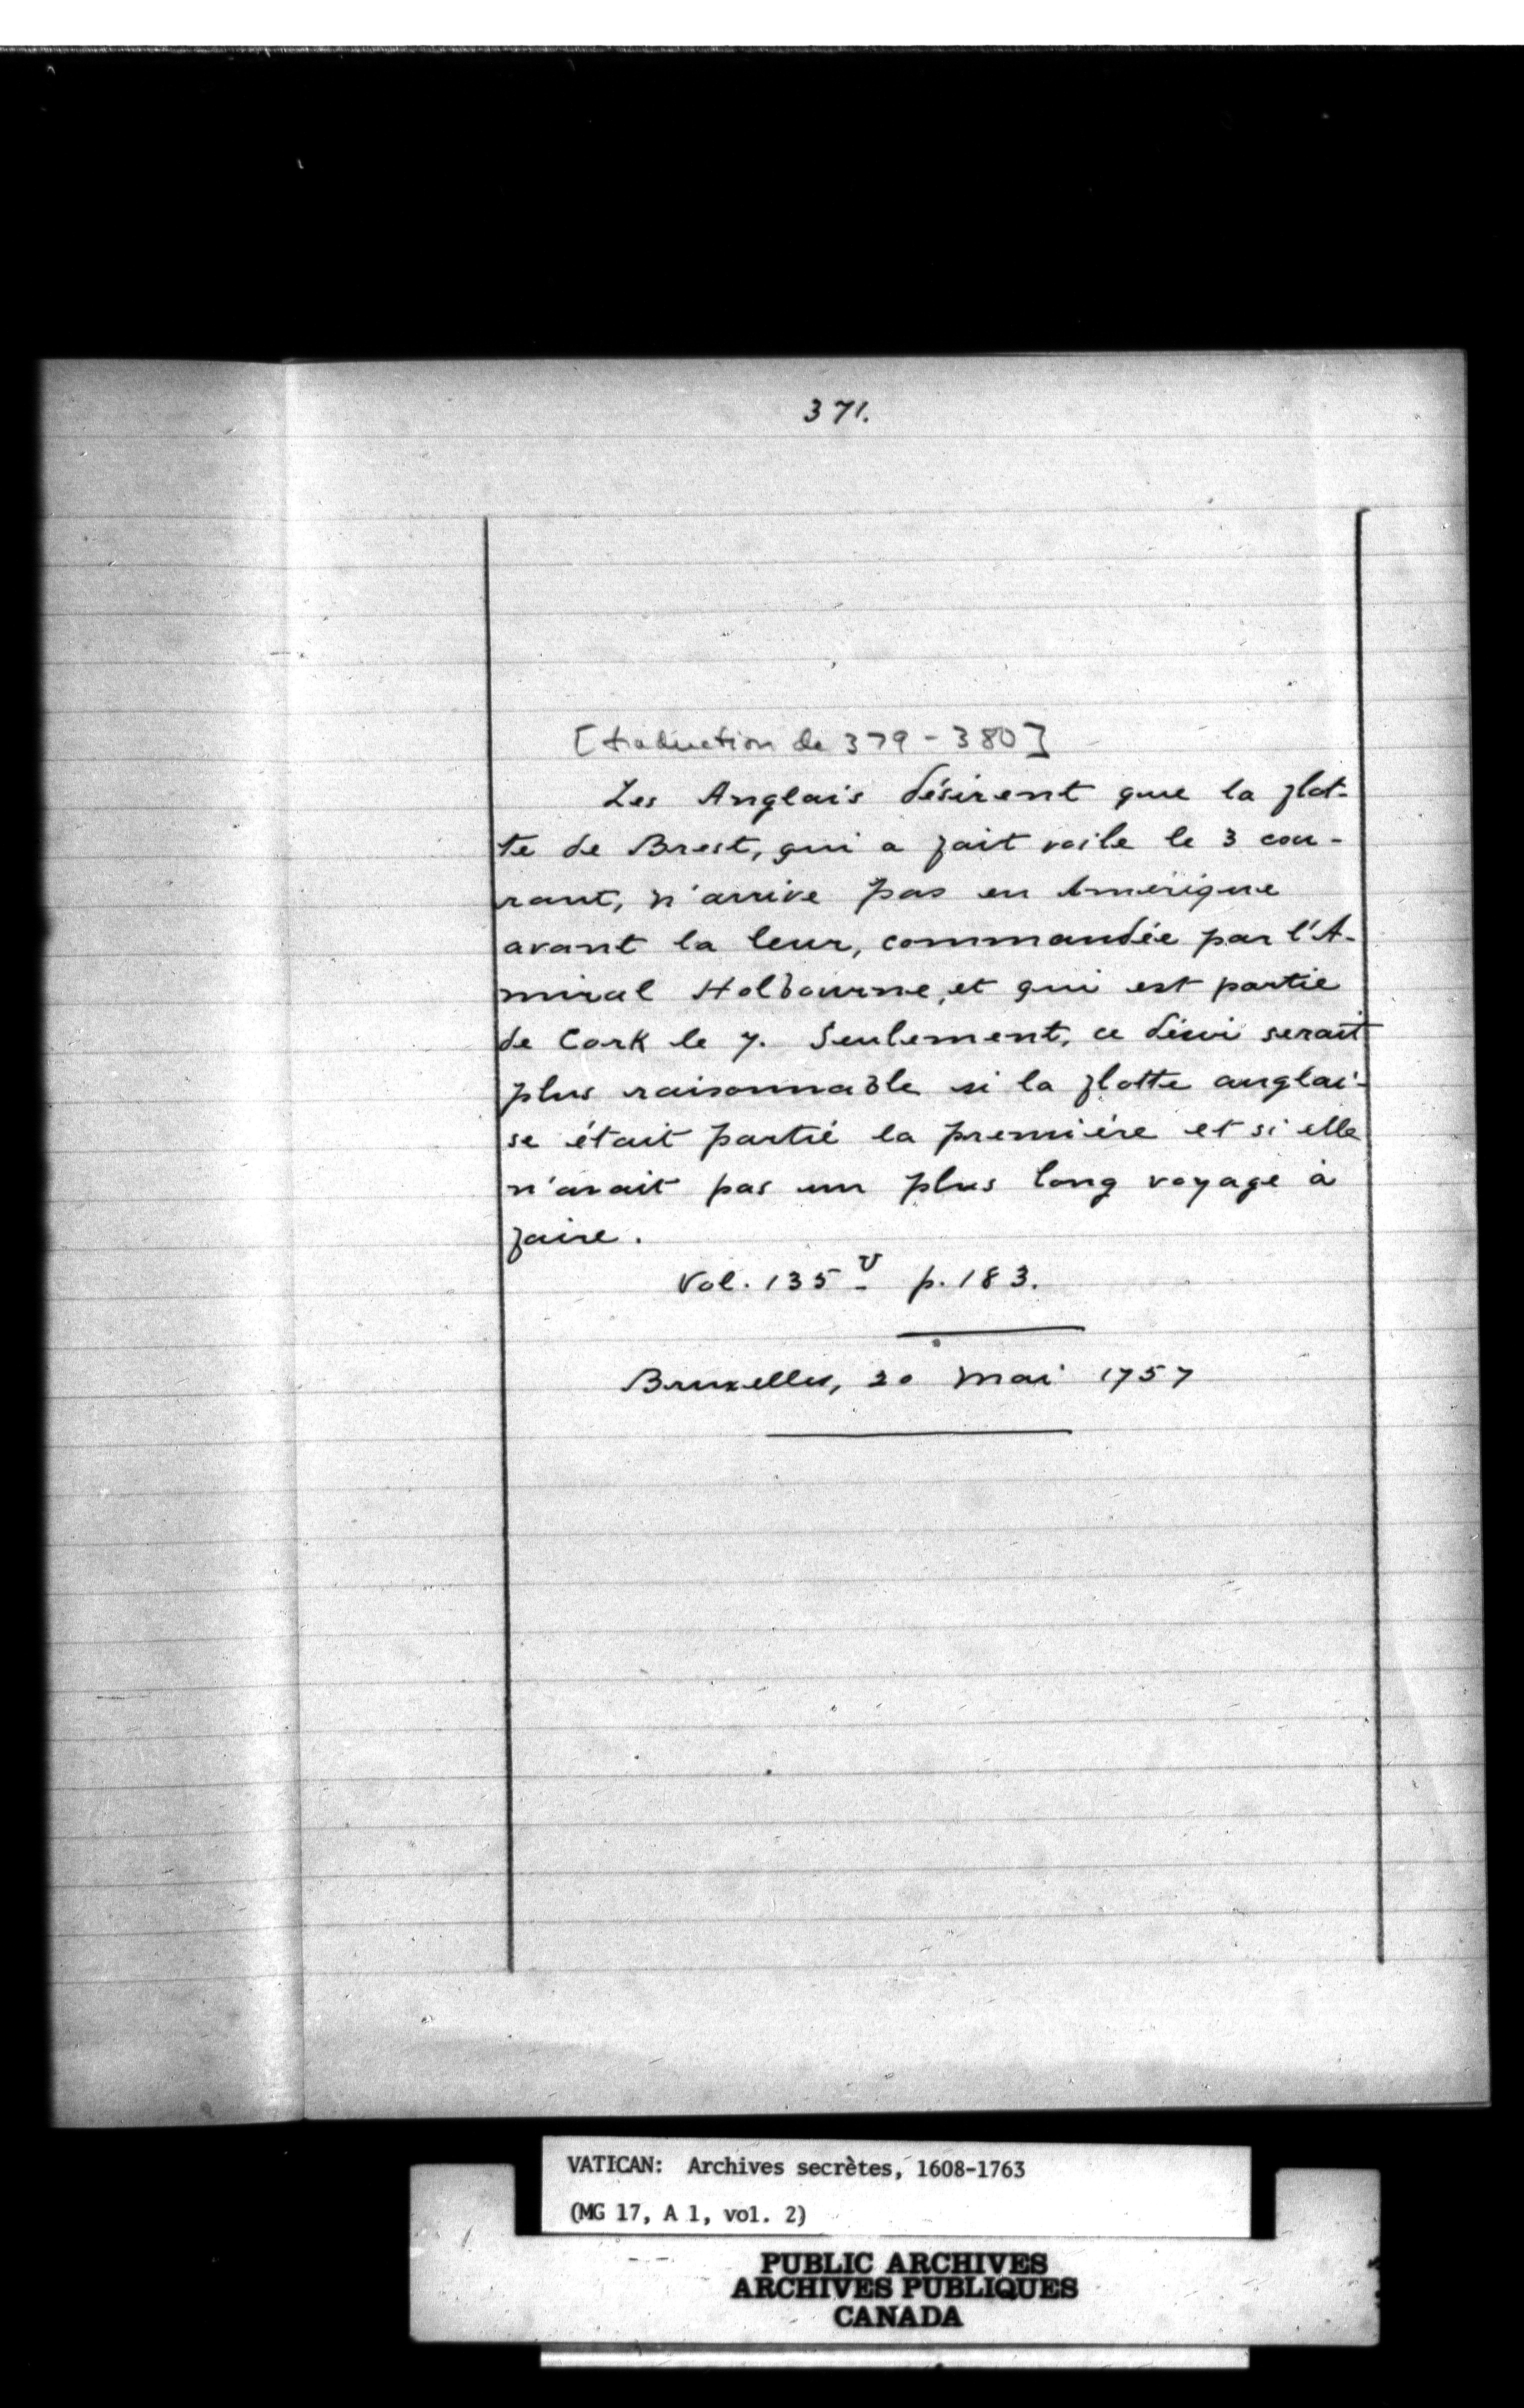 371.
[traduction de 379-380]
Les Anglais désirent que la flot-
te de Brest, qui a fait voile le 3 cou-
rant, n'arrive pas en Amérique
avant la leur, commandée par l'A-
miral Holbourne, et qui est partie
de Cork le 7. Seulement, ce désir serait
plus raisonnable si la flotte anglai-
se était partie la première et si elle
n'avait pas un plus long voyage à
faire.
Vol. 135 v p. 183.
Bruxelles, 20 mai 1757
VATICAN: Archives secrètes, 1608-1763
(MG 17, A 1, vol. 2)
PUBLIC ARCHIVES
ARCHIVES PUBLIQUES
CANADA